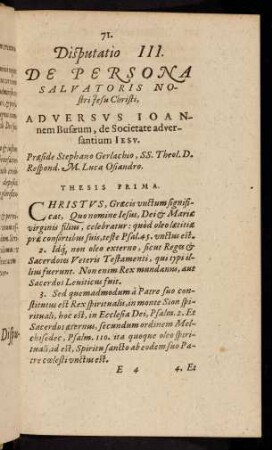 71.
Disputatio III.
DE PERSONA
SALVATORIS NO-
stri Jesu Christi,
ADVERSVS IOAN-
nem Busæum, de Societate adver-
santium IESV.
Præside Stephano Gerlachio, SS. Theol. D.
Respond. M. Luca Osiandro.
THESIS PRIMA.
CHRISTVS, Græcis vnctum signifi-
cat. Quo nomine Iesus, Dei & Mariæ
virginis filius, celebratur: quòd oleo lætitiæ
præ consortibus suis, teste Psal. 45. vnctus est.
2. Idq́, non oleo externo, sicut Reges &
Sacerdotes Veteris Testamenti, qui typi il-
lius fuerunt. Non enim Rex mundanus, aut
Sacerdos Leuiticus fuit.
3. Sed quemadmodum à Patre suo con-
stitutus est Rex spiritualis, in monte Sion spi-
rituali, hoc est, in Ecclesia Dei, Psalm. 2. Et
Sacerdos æternus, secundum ordinem Mel-
chisedec, Psalm. 110. ita quoque oleo spiri-
tuali, id est, Spiritu sancto ab eodem suo Pa-
tre cœlesti vnctus est.
E 4 4. Et